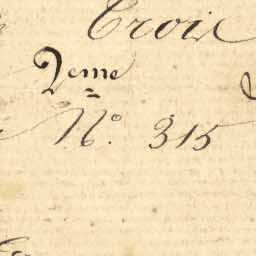 Croix
2eme
N° 315